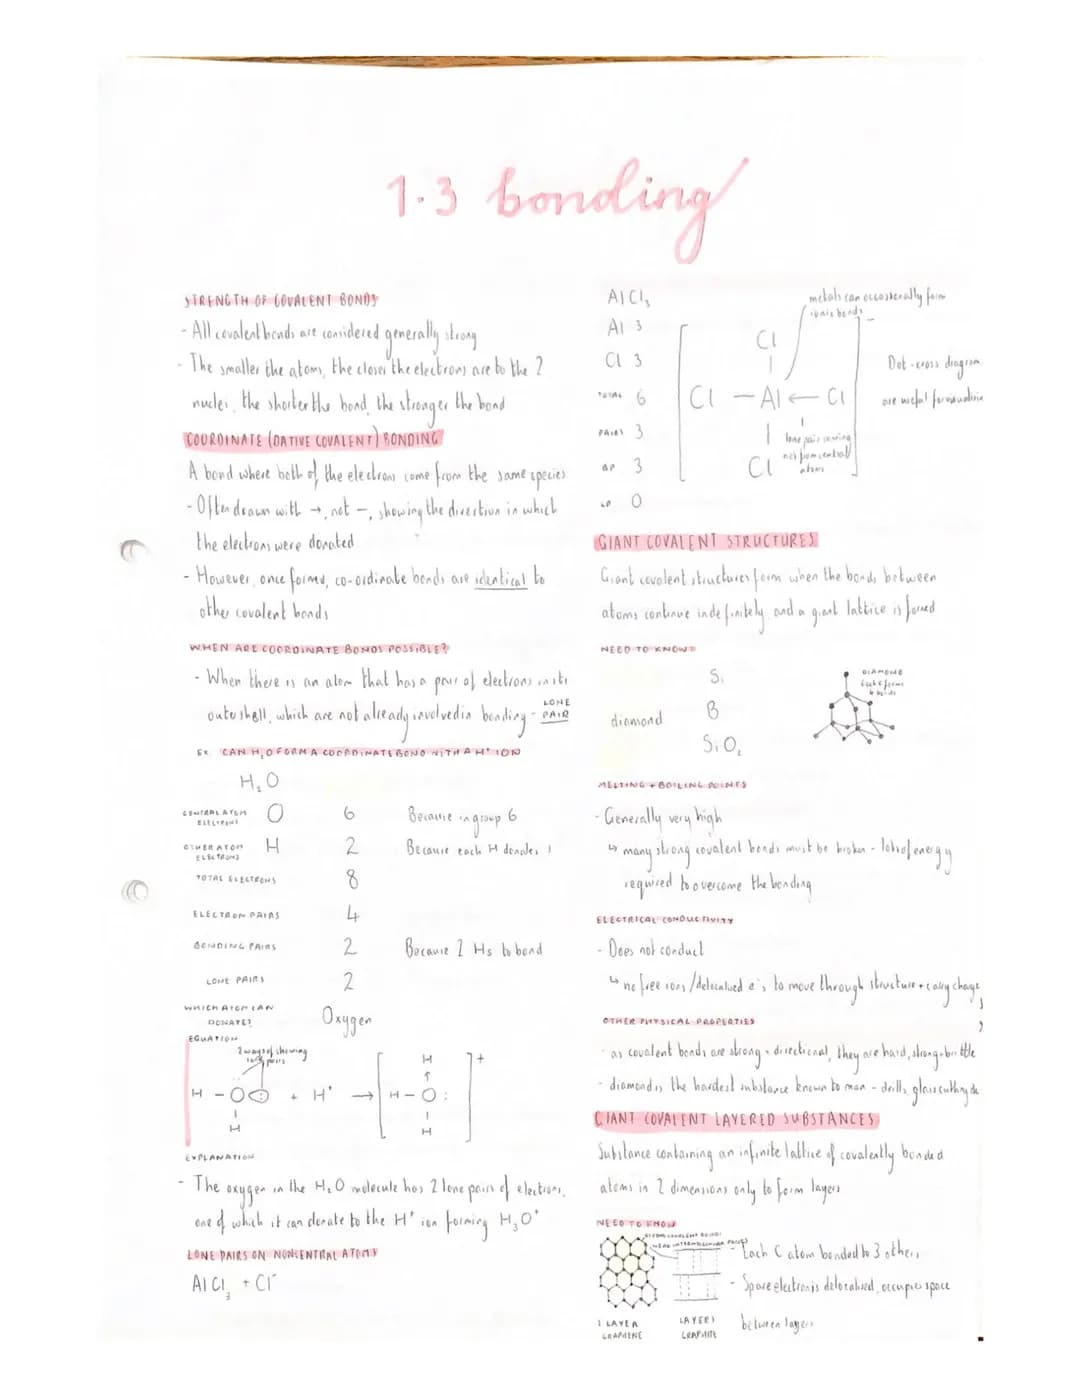 1.3 bonding
STRENGTH OF COVALENT BONDS
- All covalent bonds are considered generally strong
- The smaller the atoms, the closer the electrons are to the 2
nuclei, the shorter the bond, the stronger the bond
COORDINATE (DATIVE COVALENT) BONDING
A bond where both of the electrons come from the same species
- Often drawn with →, not –, showing the direction in which
the electrons were donated
- However, once formed, co-ordinate bonds are identical to
other covalent bonds
WHEN ARE COORDINATE BONDS POSSIBLE?
- When there is an atom that has a pair of electrons in its
outer shell, which are not already involved in bonding - LONE PAIR
EX. CAN H₂O FORM A COORDINATE BOND WITH A H⁺ ION
H₂O
CENTRAL ATOM ELECTRONS O 6 Because in group 6
OTHER ATOM ELECTRONS H 2 Because each H donates 1
TOTAL ELECTRONS 8
ELECTRON PAIRS 4
BONDING PAIRS 2 Because 2 Hs to bond
LONE PAIRS 2
WHICH ATOM CAN DONATE? Oxygen
EQUATION
2 ways of showing
lone pairs
H – O + H⁺ → [ H – O : ]⁺
H H
H
EXPLANATION
- The oxygen in the H₂O molecule has 2 lone pairs of electrons,
one of which it can donate to the H⁺ ion forming H₃O⁺
LONE PAIRS ON NONCENTRAL ATOMS
AlCl₃ + Cl⁻
AlCl₃
Al 3
Cl 3
TOTAL 6
PAIRS 3
BP 3
LP 0
metals can occasionally form
ionic bonds
Cl
Cl – Al ← Cl
Cl
lone pair coming
not from central
atom
Dot-cross diagram
are useful for
GIANT COVALENT STRUCTURES
Giant covalent structures form when the bonds between
atoms continue indefinitely and a giant lattice is formed
NEED TO KNOW
Si
diamond B
SiO₂
DIAMOND
Each C forms
4 bonds
MELTING + BOILING POINTS
- Generally very high
↳ many strong covalent bonds must be broken - lots of energy
required to overcome the bonding
ELECTRICAL CONDUCTIVITY
- Does not conduct
↳ no free ions/delocalised e⁻s to move through structure + carry charge
OTHER PHYSICAL PROPERTIES
- as covalent bonds are strong + directional, they are hard, strong + brittle
- diamond is the hardest substance known to man - drills, glass cutting
GIANT COVALENT LAYERED SUBSTANCES
Substance containing an infinite lattice of covalently bonded
atoms in 2 dimensions only to form layers
NEED TO KNOW
STRONG COVALENT BONDS
WEAK INTERMOLECULAR FORCES
- Each C atom bonded to 3 others
- Spare electron is delocalised, occupies space
between layers
1 LAYER
GRAPHENE
LAYERS
GRAPHITE